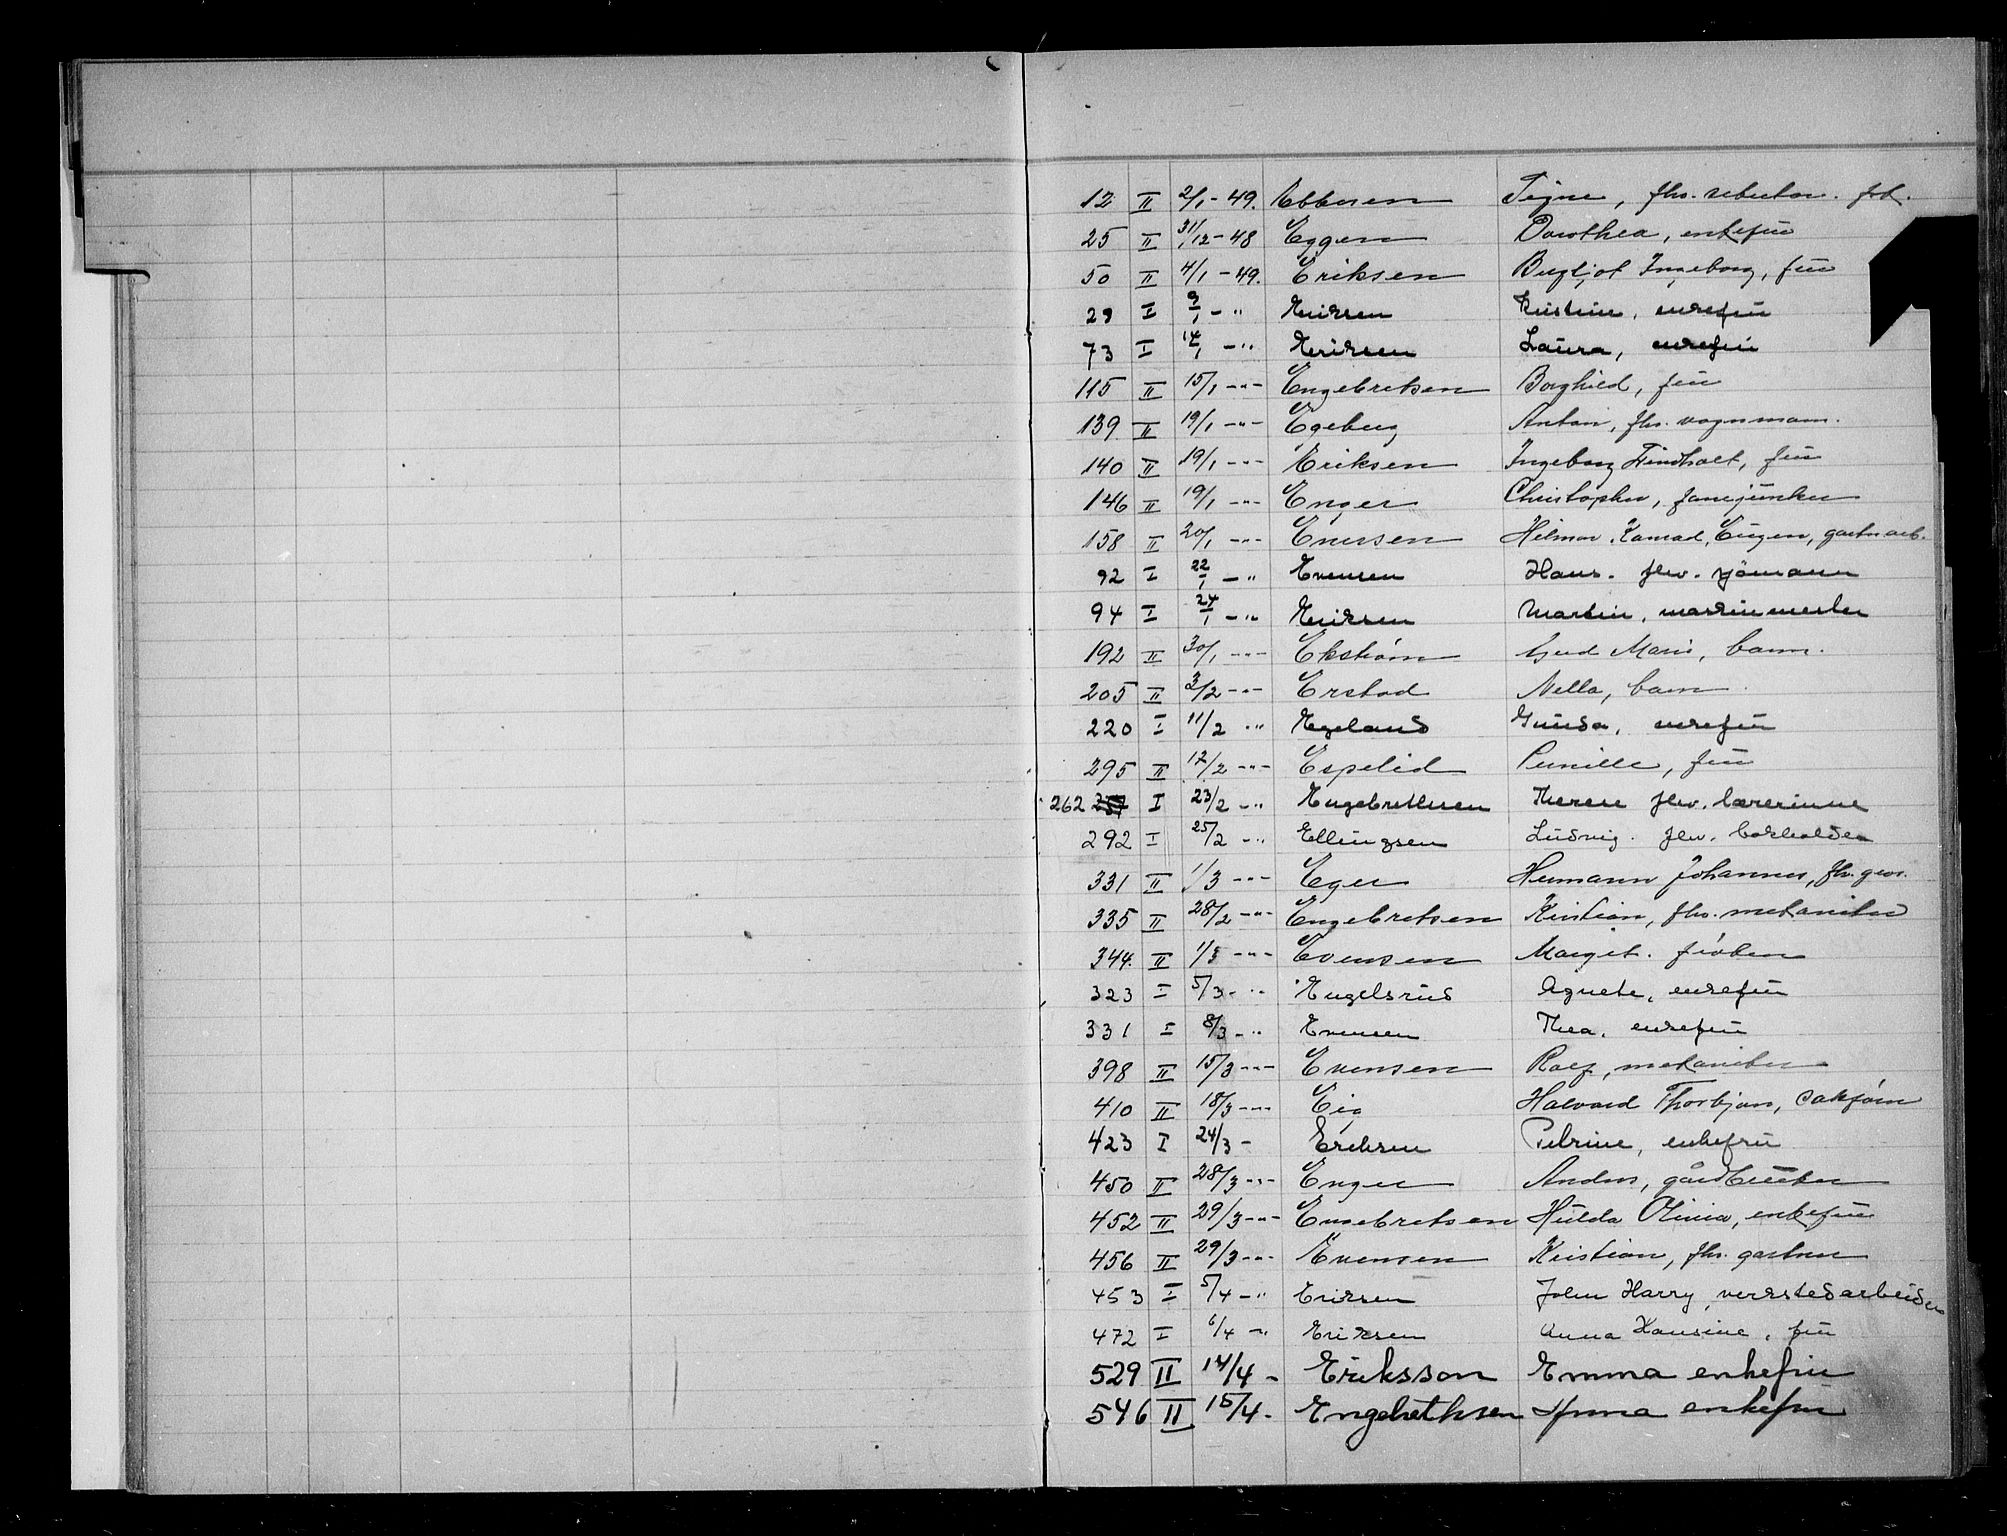 12 II 2/1 - 49. Ebbesen Signe, fhv.
25 II 31/12 - 48 Eggen Dorothea, enkefru
50 II 4/1 - 49. Eriksen Bergljot Ingeborg, fru
29 I 9/1 - " Eriksen Kristine, enkefru
73 I 14/1 - " Eriksen Laura, enkefru
115 II 15/1 - " - Engebretsen Borghild, fru
139 II 19/1 - " - Egeberg Anton, fhv. vognmann.
140 II 19/1 - " - Eriksen Ingeborg Lindholt, fru
146 II 19/1 - " - Enger Christopher, fanejunker
158 II 20/1 - " - Enersen Hilmar Konrad Eugen, gartnarb.
92 I 22/1 - " Evensen Hans. fhv. sjömann
94 I 24/1 - " Eriksen Martin, maskinmester
192 II 30/1 - " - Ekstrøm Gerd Marie, barn.
205 II 3/2 - " - Erstad Nella, barn.
220 I 11/2 " Egeland Gunda, enkefru
295 II 17/2 - " - Espelid Pernille, fru
262 I 23/2 - " Engebrethsen Therese fhv. lærerinne
292 I 25/2 - " Ellingsen Ludvig. fhv. bokholder
331 II 1/3 - " - Eger Hermann Johannes, fhv. gros.
335 II 28/2 - " - Engebretsen Kristian, fhv. mekaniker
344. II 1/3 - " - Evensen Margit. frøken
323 I 5/3 - " Engelsrud Agnete, enkefru
331 I 8/3 - " Evensen Thea, enkefru
398 II 15/3 - " - Evensen Rolf, mekaniker
410 II 18/3 - " - Eig Halvard Thorbjørn, sakfører
423 I 24/3 - Eriksen Petrine, enkefru
450 II 28/3 - " - Enger Anders, gårdbruker
452 II 29/3 - " - Engebretsen Hulda Olivia, enkefru
456 II 29/3 - " - Evensen Kristian, fhv. gartner
453 I 5/4 - " Eriksen John Harry, verkstedarbeider
472 I 6/4 - " Eriksen Anna Hansine, fru
529 II 14/4 - Eriksson Emma enkefru
546 II 15/4 - Engebrethsen Anna enkefru